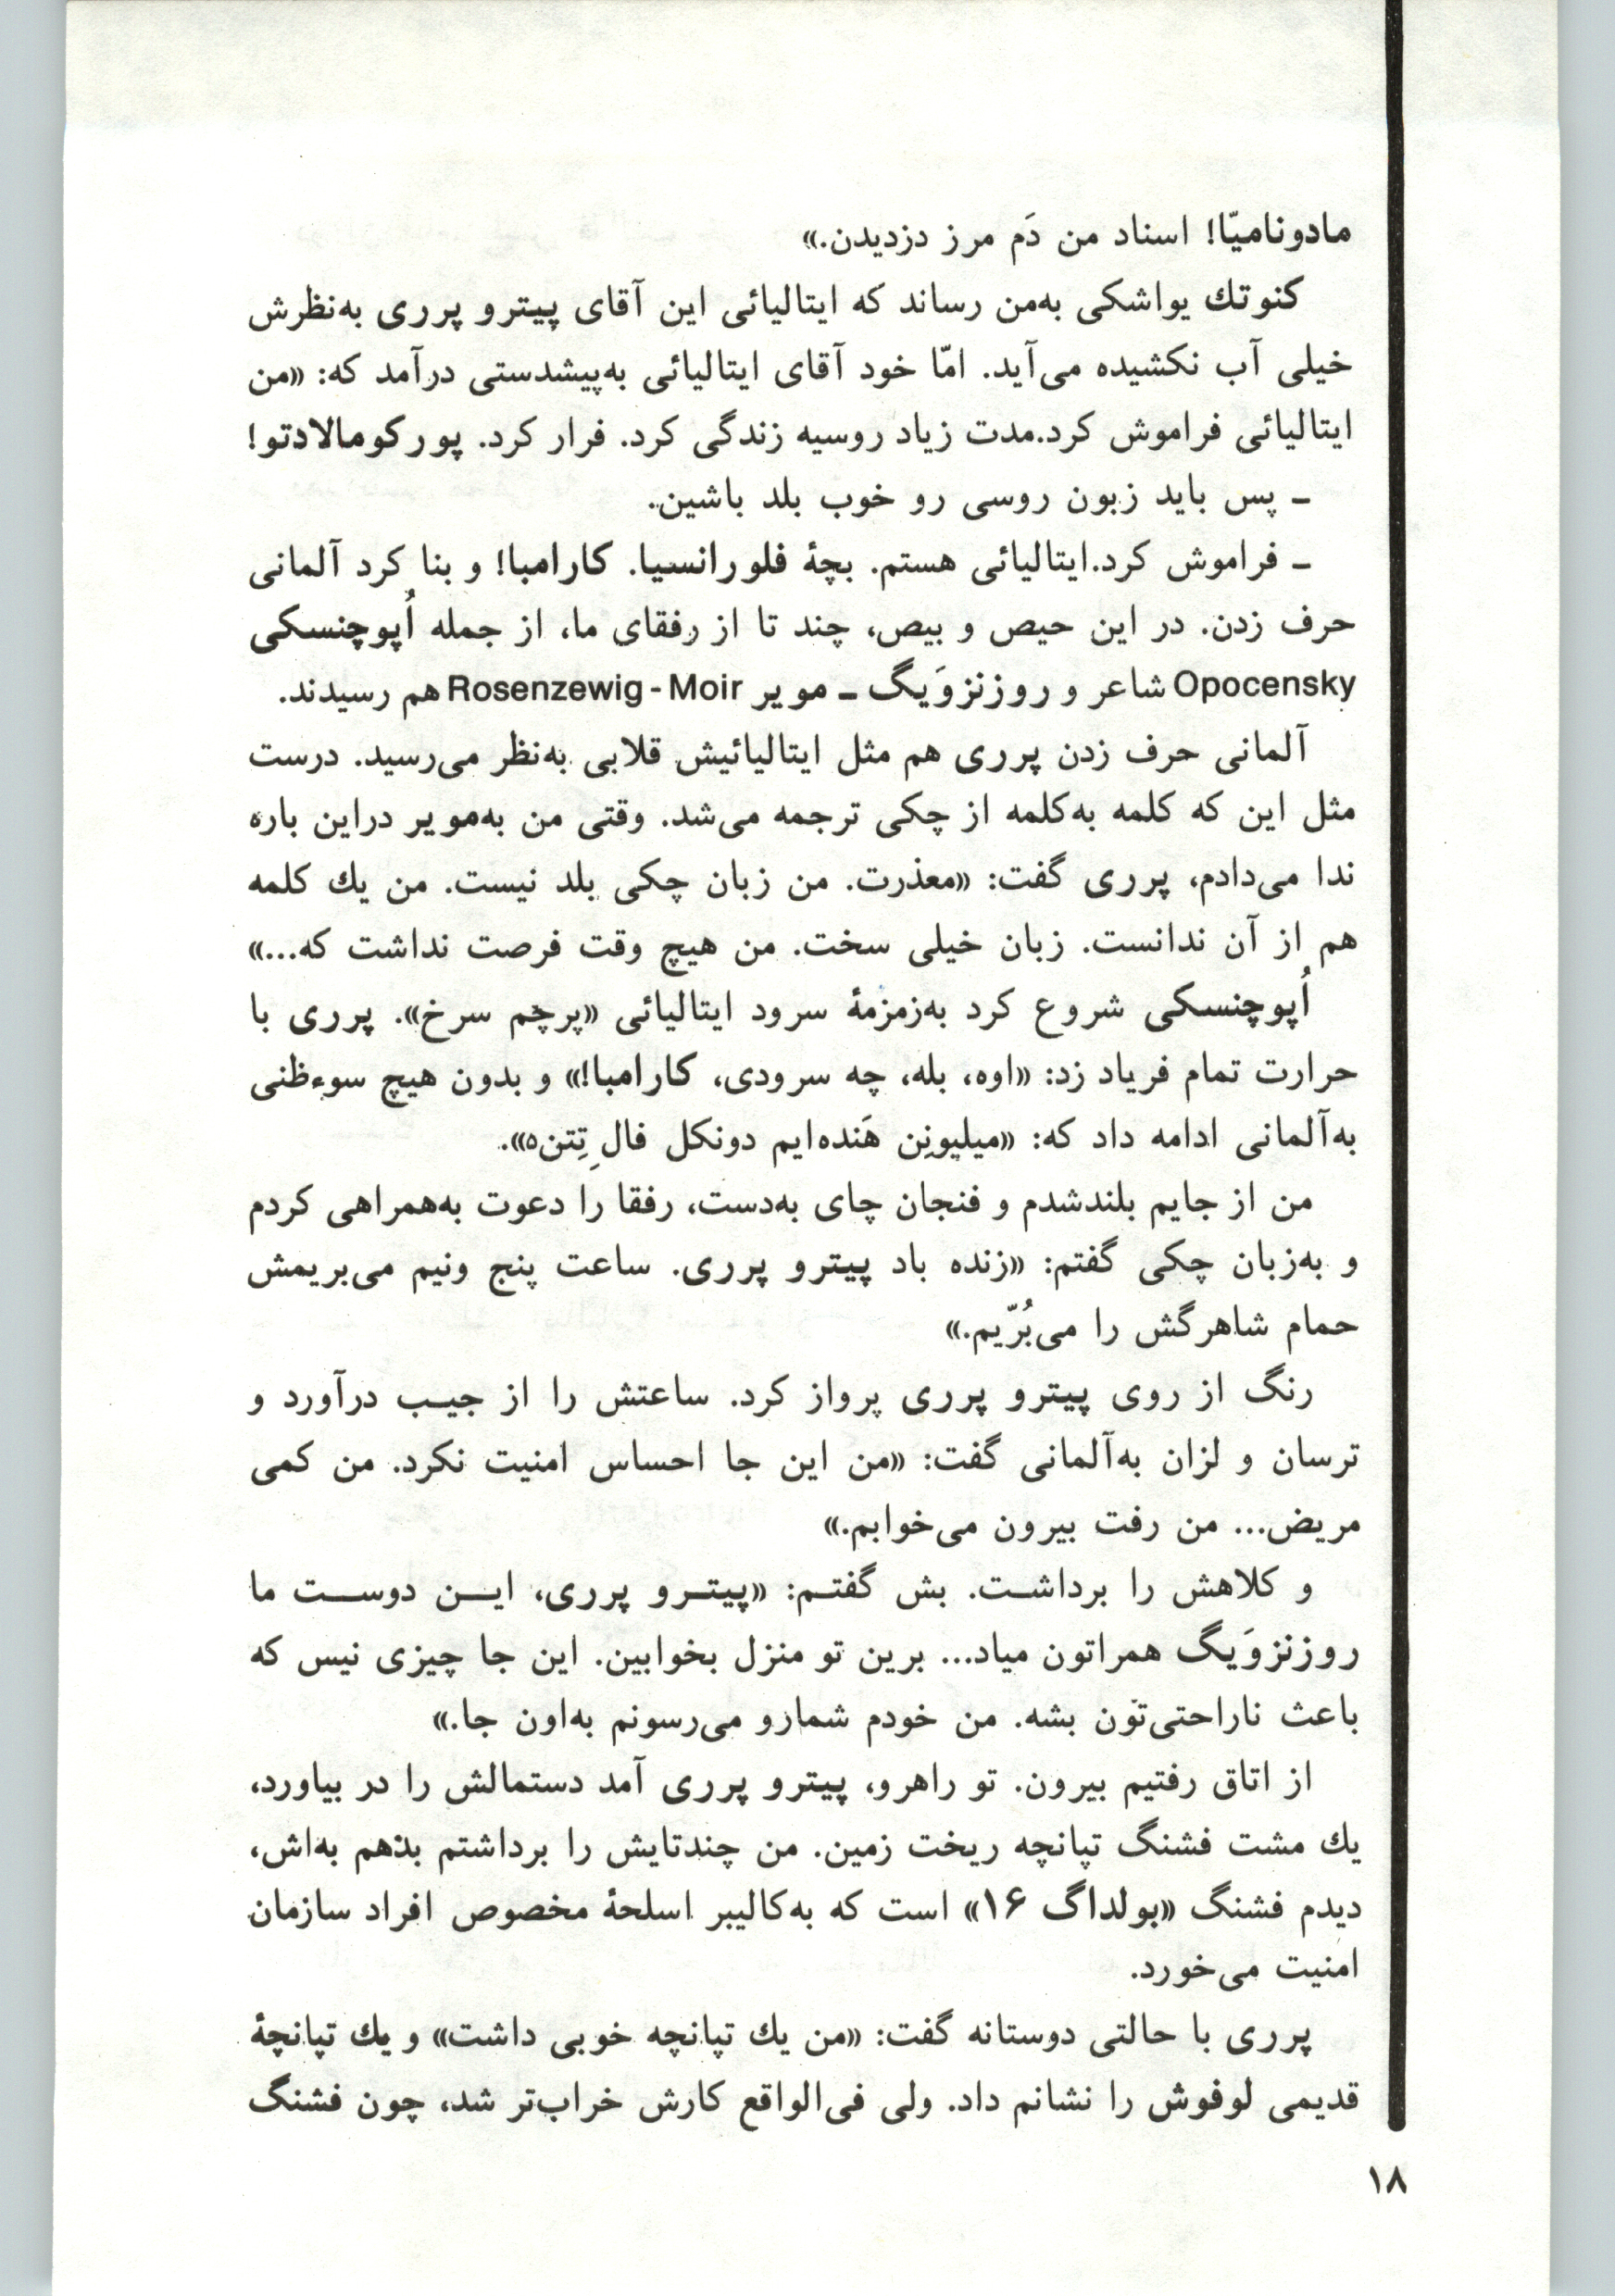 مادونامیّا! اسناد من دَم مرز دزدیدن.»
کنوتك یواشکی به‌من رساند که ایتالیائی این آقای پیترو پرری به‌نظرش
خیلی آب نکشیده می‌آید. امّا خود آقای ایتالیائی به‌پیشدستی درآمد که: «من
ایتالیائی فراموش کرد.مدت زیاد روسیه زندگی کرد. فرار کرد. پورکومالادتو!
ـ پس باید زبون روسی رو خوب بلد باشین.
ـ فراموش کرد.ایتالیائی هستم. بچهٔ فلورانسیا. کارامبا! و بنا کرد آلمانی
حرف زدن. در این حیص و بیص، چند تا از رفقای ما، از جمله اُپوچنسکی
Opocensky شاعر و روزنزوَیگ ـ مویر Rosenzewig - Moir هم رسیدند.
آلمانی حرف زدن پرری هم مثل ایتالیائیش قلابی به‌نظر می‌رسید. درست
مثل این که کلمه به‌کلمه از چکی ترجمه می‌شد. وقتی من به‌مویر دراین باره
ندا می‌دادم، پرری گفت: «معذرت. من زبان چکی بلد نیست. من یك کلمه
هم از آن ندانست. زبان خیلی سخت. من هیچ وقت فرصت نداشت که...»
اُپوچنسکی شروع کرد به‌زمزمهٔ سرود ایتالیائی «پرچم سرخ». پرری با
حرارت تمام فریاد زد: «اوه، بله، چه سرودی، کارامبا!» و بدون هیچ سوءظنی
به‌آلمانی ادامه داد که: «میلیونِن هَنده‌ایم دونکل فال تِتِن۵».
من از جایم بلندشدم و فنجان چای به‌دست، رفقا را دعوت به‌همراهی کردم
و به‌زبان چکی گفتم: «زنده باد پیترو پرری. ساعت پنج ونیم می‌بریمش
حمام شاهرگش را می‌بُرّیم.»
رنگ از روی پیترو پرری پرواز کرد. ساعتش را از جیب درآورد و
ترسان و لزان به‌آلمانی گفت: «من این جا احساس امنیت نکرد. من کمی
مریض... من رفت بیرون می‌خوابم.»
و کلاهش را برداشت. بش گفتم: «پیترو پرری، این دوست ما
روزنزوَیگ همراتون میاد... برین تو منزل بخوابین. این جا چیزی نیس که
باعث ناراحتی‌تون بشه. من خودم شمارو می‌رسونم به‌اون جا.»
از اتاق رفتیم بیرون. تو راهرو، پیترو پرری آمد دستمالش را در بیاورد،
یك مشت فشنگ تپانچه ریخت زمین. من چندتایش را برداشتم بدهم به‌اش،
دیدم فشنگ «بولداگ ۱۶» است که به‌کالیبر اسلحهٔ مخصوص افراد سازمان
امنیت می‌خورد.
پرری با حالتی دوستانه گفت: «من یك تپانچه خوبی داشت» و یك تپانچهٔ
قدیمی لوفوش را نشانم داد. ولی فی‌الواقع کارش خراب‌تر شد، چون فشنگ
۱۸